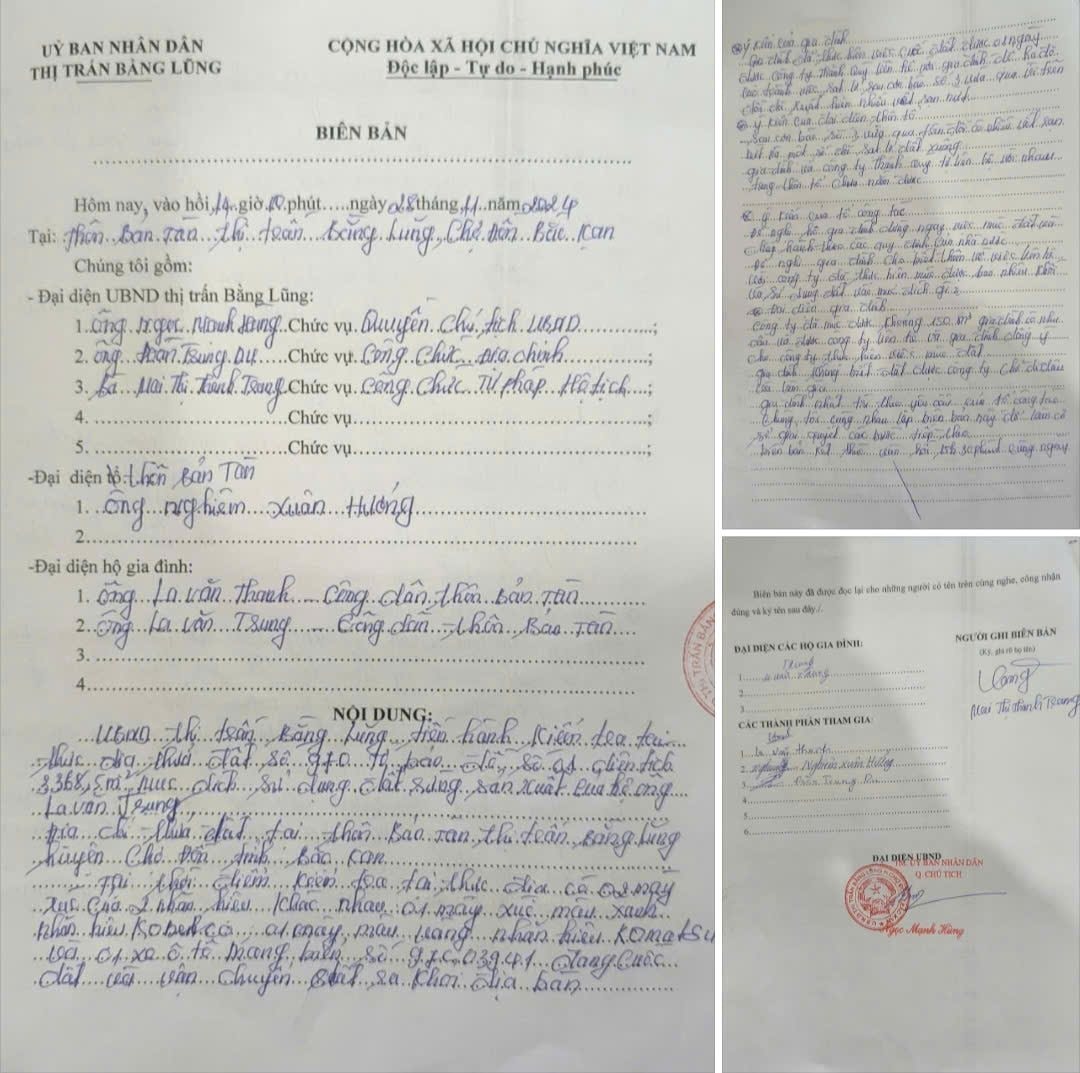 UỶ BAN NHÂN DÂN
THỊ TRẤN BẰNG LŨNG
CỘNG HÒA XÃ HỘI CHỦ NGHĨA VIỆT NAM
Độc lập - Tự do - Hạnh phúc
BIÊN BẢN
Hôm nay, vào hồi 14 giờ 10 phút.....ngày 28 tháng 11 năm 2024
Tại: Thôn Bản Tàn Thị trấn Bằng Lũng, Chợ Đồn Bắc Kạn
Chúng tôi gồm:
- Đại diện UBND thị trấn Bằng Lũng:
1. Ông Ngọc Mạnh Hùng Chức vụ Quyền Chủ tịch UBND
2. Ông Trần Trung Du Chức vụ Công chức Địa chính
3. Bà Mai Thị Thanh Trang Chức vụ Công chức Tư pháp Hộ tịch
4. Chức vụ
5. Chức vụ
-Đại diện tổ: thôn Bản Tàn
1. Ông Nghiêm Xuân Hướng
2.
-Đại diện hộ gia đình:
1. Ông La Văn Thanh Công dân thôn Bản Tàn
2. Ông La Văn Trung Công dân thôn Bản Tàn
3.
4.
NỘI DUNG:
UBND thị trấn Bằng Lũng tiến hành kiểm tra tại
thực địa thửa đất số 970 tờ bản đồ số 91 diện tích
3368,5 m² mục đích sử dụng đất rừng sản xuất của hộ ông
La Văn Trung
Địa chỉ thửa đất tại thôn Bản Tàn thị trấn Bằng Lũng
huyện Chợ Đồn tỉnh Bắc Kạn
Tại thời điểm kiểm tra tại thực địa có 02 máy
xúc của 2 nhãn hiệu khác nhau 01 máy xúc màu xanh
nhãn hiệu Kobenco 01 máy màu vàng nhãn hiệu Komatsu
và 01 xe ô tô mang biển số 97C 03941 đang cuốc
đất và vận chuyển đất ra khỏi địa bàn
* Ý kiến của gia đình
Gia đình đã thực hiện việc cuốc đất được 01 ngày
được công ty Thành Quy liên hệ với gia đình để
sạt lở sau cơn bão số 3 vừa qua
đồi đã xuất hiện nhiều vết rạn nứt
* Ý kiến của đại diện thôn tổ
Sau cơn bão số 3 vừa qua trên đồi có nhiều vết rạn
nứt và một số chỗ sạt lở đất xuống
gia đình và công ty Thành Quy tự liên hệ với nhau
thôn tổ chưa nắm được
* Ý kiến của tổ công tác
Đề nghị hộ gia đình dừng ngay việc múc đất
Chấp hành theo các quy định của nhà nước
Đề nghị gia đình cho biết thêm về việc liên hệ
với công ty đã thực hiện múc được bao nhiêu khối
và sử dụng đất vào mục đích gì?
* Đại diện gia đình
Công ty đã múc được khoảng 150 m³ gia đình có nhu
cầu và được công ty liên hệ và gia đình đồng ý
cho công ty thực hiện việc múc đất
gia đình không biết đất được công ty chở đi đâu
và làm gì
gia đình nhất trí theo yêu cầu của tổ công tác
Chúng tôi cùng nhau lập biên bản này để làm cơ
sở giải quyết các bước tiếp theo
biên bản kết thúc vào hồi 15h 30 phút cùng ngày
Biên bản này đã được đọc lại cho những người có tên trên cùng nghe, công nhận
đúng và ký tên sau đây./.
ĐẠI DIỆN CÁC HỘ GIA ĐÌNH:
NGƯỜI GHI BIÊN BẢN
(Ký, ghi rõ họ tên)
Trung
1. La Văn Trung
2.
3.
Mai Thị Thanh Trang
CÁC THÀNH PHẦN THAM GIA
1. La Văn Thanh
2. Nghiêm Xuân Hướng
3. Trần Trung Du
4.
5.
6.
ĐẠI DIỆN UBND
TM. UỶ BAN NHÂN DÂN
Q. CHỦ TỊCH
Ngọc Mạnh Hùng